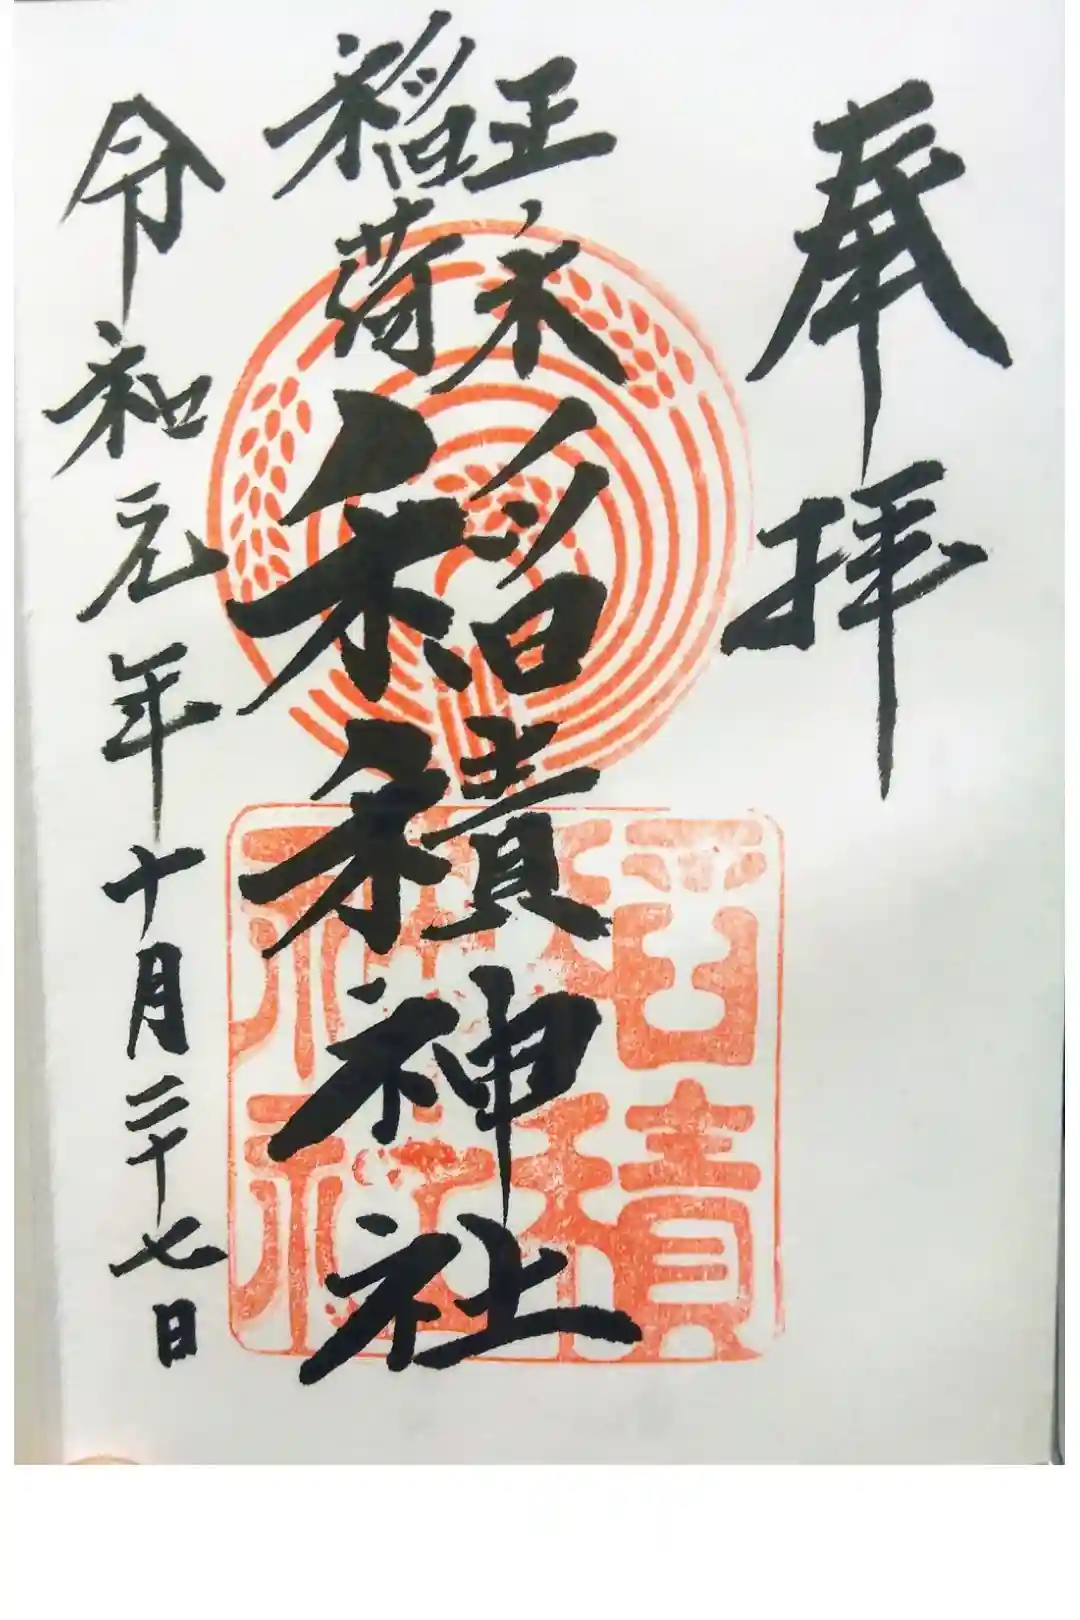 奉拝
正木
稲荷
稲積神社
令和元年十月二十七日
稲積
神社